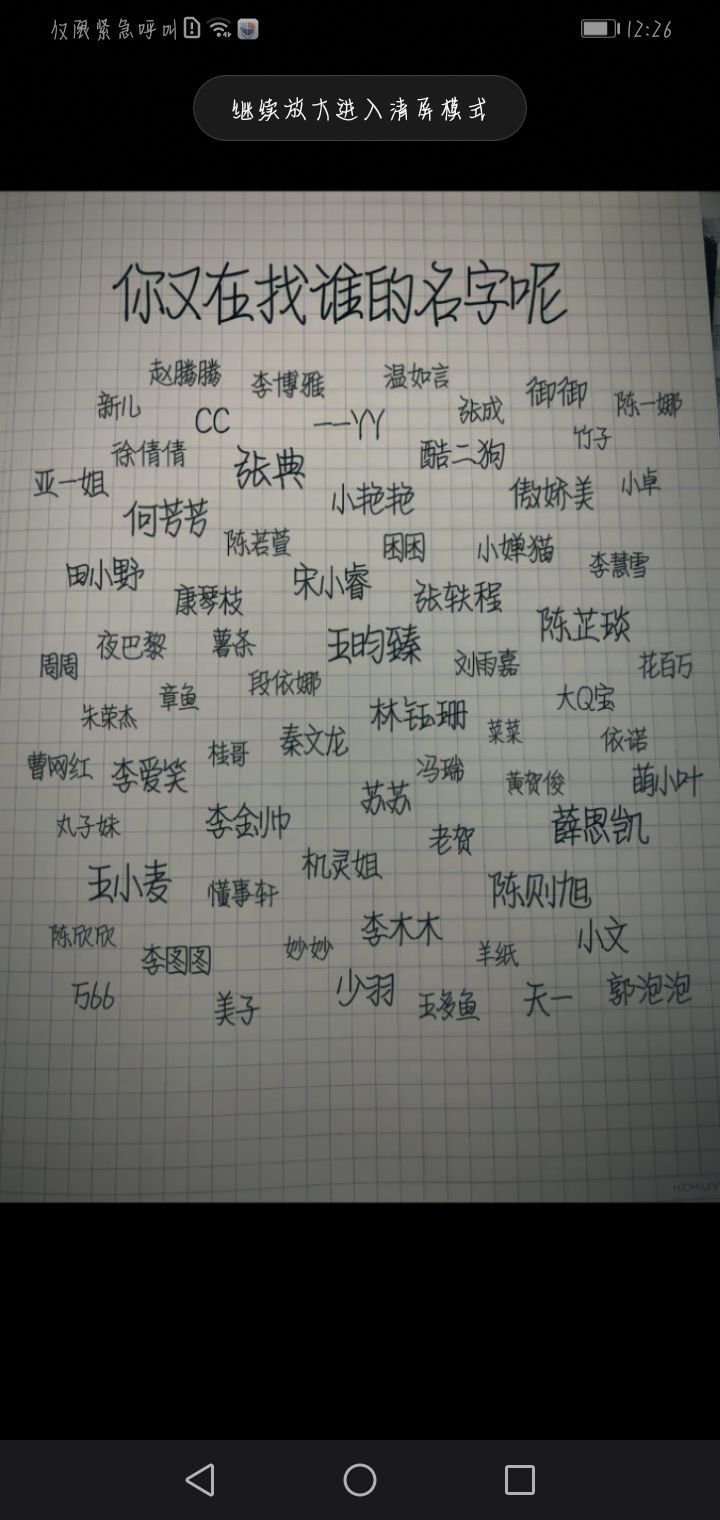 仅限紧急呼叫
12:26
继续放大进入清屏模式
你又在找谁的名字呢
赵腾腾 李博雅 温如言
新儿 CC 一一YY 张成 御御 陈一娜
徐倩倩 张典 酷二狗 竹子
亚一姐 何芳芳 小艳艳 傲娇美 小卓
陈若萱 困困 小婵猫 李慧雪
田小野 康琴枝 宋小睿 张轶程
周周 夜巴黎 薯条 王昀臻 刘雨嘉 陈芷琰 花百万
朱荣杰 章鱼 段依娜 林钰珊 菜菜 大Q宝
曹网红 李爱笑 桂哥 秦文龙 冯瑞 黄贺俊 依诺 萌小叶
丸子妹 李金帅 苏苏 老贺 薛恩凯
王小麦 懂事轩 机灵姐 陈则旭
陈欣欣 李图图 妙妙 李木木 羊纸 小文
万66 美子 少羽 王多鱼 天一 郭泡泡
KOKUYO